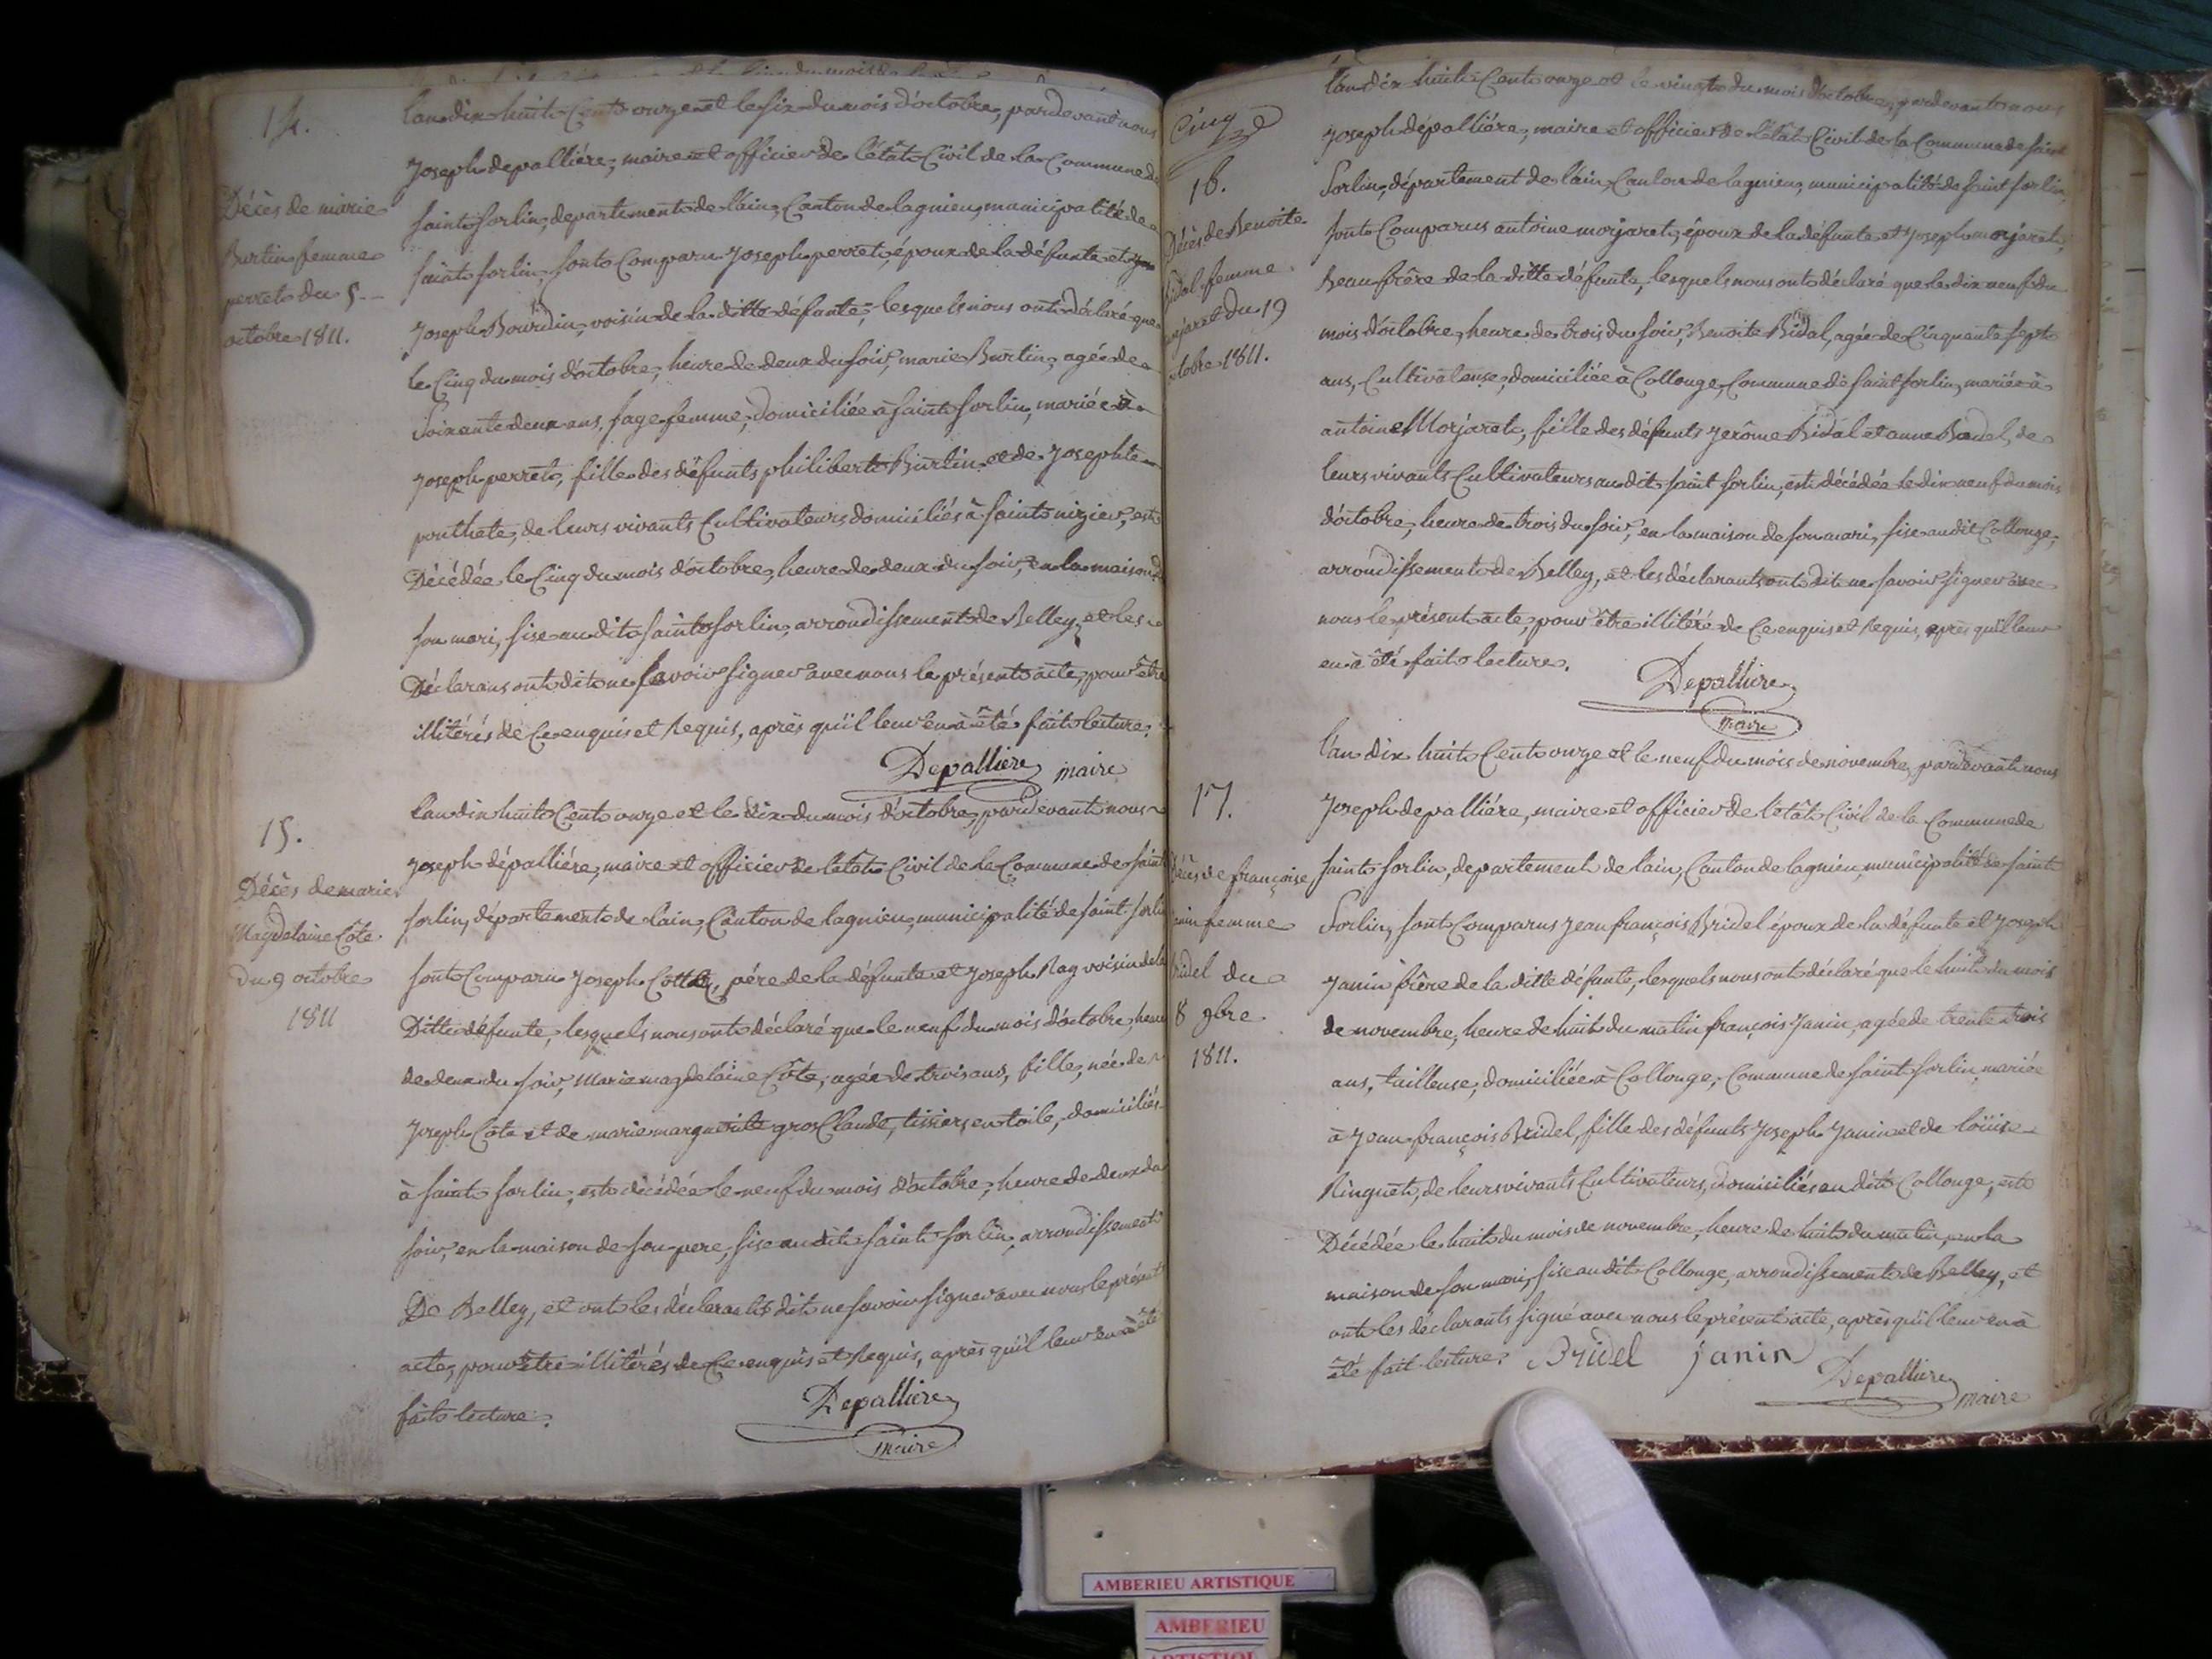 14.
Décès de marie
Burtin femme
perret du 5.
octobre 1811.
l'an dix huit Cent onze et le six du mois d'octobre, pardevant nous
Joseph depalliére, maire et officier de l'êtât Civil de la Commune de
saint sorlin, departement de l'ain, Canton de lagnieu, municipalité de
saint sorlin, sont Comparu Joseph perret, époux de la défunte et
Joseph Bourdin, voisin de la ditte défunte, lesquels nous ont déclaré que
le Cinq du mois d'octobre, heure de deux du soir, marie Burtin, agée de
Soixante deux ans, sage femme, domiciliée à saint sorlin, mariée à
Joseph perret, fille des défunts philibert Burtin et de Josephte
ponthete, de leurs vivants Cultivateurs domiciliés à saint nizier, est
Décédée le Cinq du mois d'octobre, heure de deux du soir, en la maison de
son mari, sise au dit saint sorlin, arrondissement de Belley, et les
Déclarans ont dit ne savoir signer avec nous le présent acte, pour être
illitérés de Ce enquis et Requis, après qu'il leur en à été fait lecture.
Depalliere maire
15.
Décès de marie
Magdelaine Côte
du 9 octobre
1811
l'an dix huit Cent onze et le dix du mois d'octobre, pardevant nous
Joseph dépalliére, maire et officier de l'êtât Civil de la Commune de saint
sorlin, département de l'ain, Canton de lagnieu, municipalité de saint sorlin
sont Comparu Joseph, pére de la défunte et Joseph Ray voisin de la
Ditte défunte, lesquels nous ont déclaré que le neuf du mois d'octobre, heure
de deux du soir, Marie magdelaine Côte, agée de trois ans, fille, née de
Joseph Côte et de marie marguerite gros Claude, tissiers en toile, domiciliés
à saint sorlin, est décédée le neuf du mois d'octobre, heure de deux du
soir, en la maison de son pere, sise au dit saint sorlin, arrondissement
De Belley, et ont les déclarants dit ne savoir signer avec nous le présent
acte, pour être illitérés de Ce enquis et Requis, après qu'il leur en à été
fait lecture.
Depalliere
maire
Cinq
16.
Décès de Benoite
Bidal femme
morjaret du 19
octobre 1811.
l'an dix huit Cent onze et le vingt du mois d'octobre, pardevant nous
Joseph dépalliére, maire et officier de l'êtât Civil de la Commune de saint
Sorlin, département de l'ain, Canton de lagnieu, municipalité de saint sorlin,
sont Comparus antoine morjaret, époux de la défunte et Joseph morjaret,
Beau frére de la ditte défunte, lesquels nous ont déclaré que le dix neuf du
mois d'octobre, heure de trois du soir, Benoite Bidal, agée de Cinquante sept
ans, Cultivateuse, domiciliée à Collonge, Commune de saint sorlin, mariée à
antoine Morjaret, fille des défunts Jerôme Bidal et anne Badel, de
leurs vivants Cultivateurs au dit saint sorlin, est décédée le dix neuf du mois
d'octobre, heure de trois du soir, en la maison de son mari, sise au dit Collonge,
arrondissement de Belley, et les déclarants ont dit ne savoir signer avec
nous le présent acte, pour être illitéré de Ce enquis et Requis, après qu'il leur
en à été fait lecture.
Depalliere
maire
17.
Décès de françoise
Janin femme
Bridel du
8 9bre
1811.
l'an dix huit Cent onze et le neuf du mois de novembre, pardevant nous
Joseph depalliére, maire et officier de l'êtât Civil de la Commune de
saint sorlin, departement de l'ain, Canton de lagnieu, municipalité de saint
Sorlin, sont Comparus Jean françois Bridel époux de la défunte et Joseph
Janin frère de la ditte défunte, lesquels nous ont déclaré que le huit du mois
de novembre, heure de huit du matin françois Janin, agée de trente trois
ans, tailleuse, domiciliée à Collonge, Commune de saint sorlin, mariée
à Jean françois Bridel, fille des défunts Joseph Janin et de loüise
Ringuet, de leurs vivants Cultivateurs, domiciliés au dit Collonge, est
Décédée le huit du mois de novembre, heure de huit du matin, en la
maison de son mari, sise au dit Collonge, arrondissement de Belley, et
ont les déclarants signé avec nous le présent acte, après qu'il leur en à
été fait lecture. Bridel janin
Depalliere
maire
AMBERIEU ARTISTIQUE
AMBERIEU
ARTISTIQUE